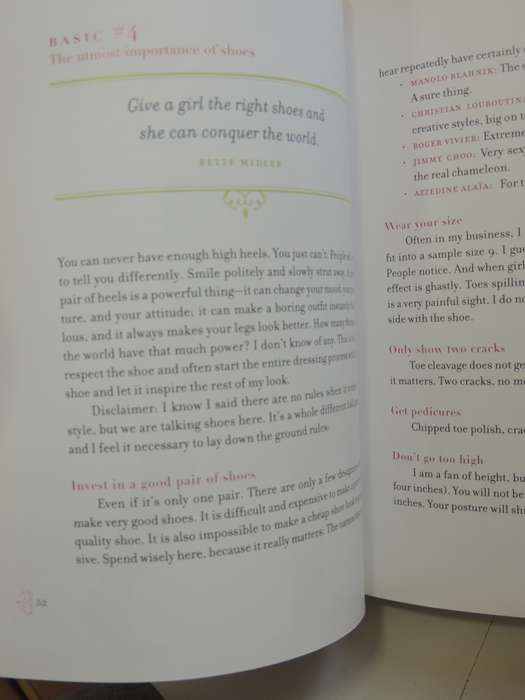 BASIC #4
The utmost importance of shoes
Give a girl the right shoes and
she can conquer the world.
BETTE MIDLER
You can never have enough high heels. You just can't. People
to tell you differently. Smile politely and slowly strut away.
pair of heels is a powerful thing—it can change your mood,
ture, and your attitude; it can make a boring outfit
lous, and it always makes your legs look better. How many
the world have that much power? I don't know of any.
respect the shoe and often start the entire dressing process
shoe and let it inspire the rest of my look.
Disclaimer: I know I said there are no rules when it
style, but we are talking shoes here. It's a whole different
and I feel it necessary to lay down the ground rules.
Invest in a good pair of shoes
Even if it's only one pair. There are only a few designers
make very good shoes. It is difficult and expensive to make
quality shoe. It is also impossible to make a cheap shoe look
sive. Spend wisely here, because it really matters. The
52
hear repeatedly have certainly
• MANOLO BLAHNIK: The s
A sure thing.
• CHRISTIAN LOUBOUTIN:
creative styles, big on t
• ROGER VIVIER: Extreme
• JIMMY CHOO: Very sex
the real chameleon.
• AZZEDINE ALAÏA: For t
Wear your size
Often in my business, I
fit into a sample size 9. I gu
People notice. And when girl
effect is ghastly. Toes spillin
is a very painful sight. I do n
side with the shoe.
Only show two cracks
Toe cleavage does not ge
it matters. Two cracks, no m
Get pedicures
Chipped toe polish, cra
Don't go too high
I am a fan of height, bu
four inches). You will not be
inches. Your posture will shi